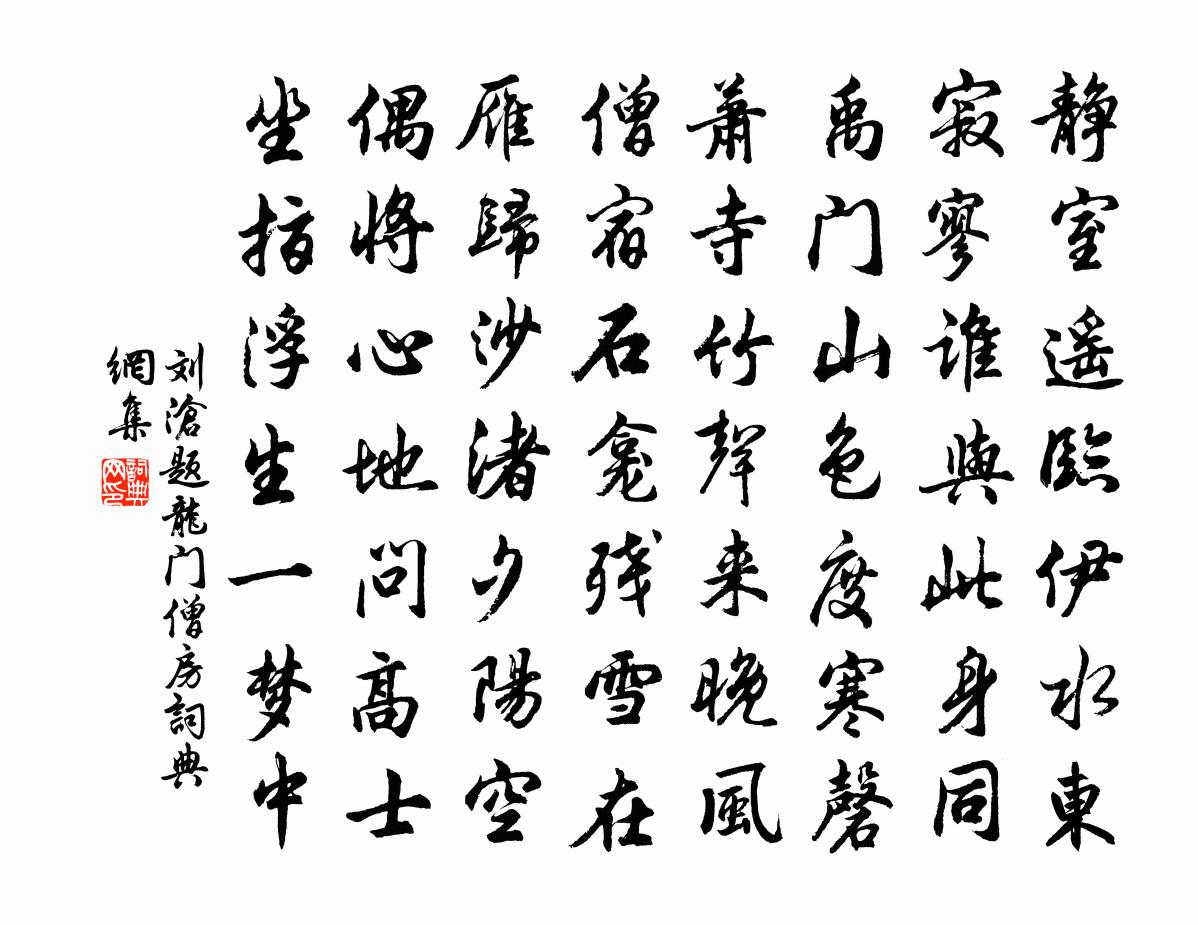 静室遥臨伊水東
寂寥誰與此身同
禹门山色度寒磬
蕭寺竹聲来晚風
僧宿石龕残雪在
雁歸沙渚夕陽空
偶將心地问高士
坐指浮生一梦中
刘滄题龍门僧房詞典
網集
詞典
网印